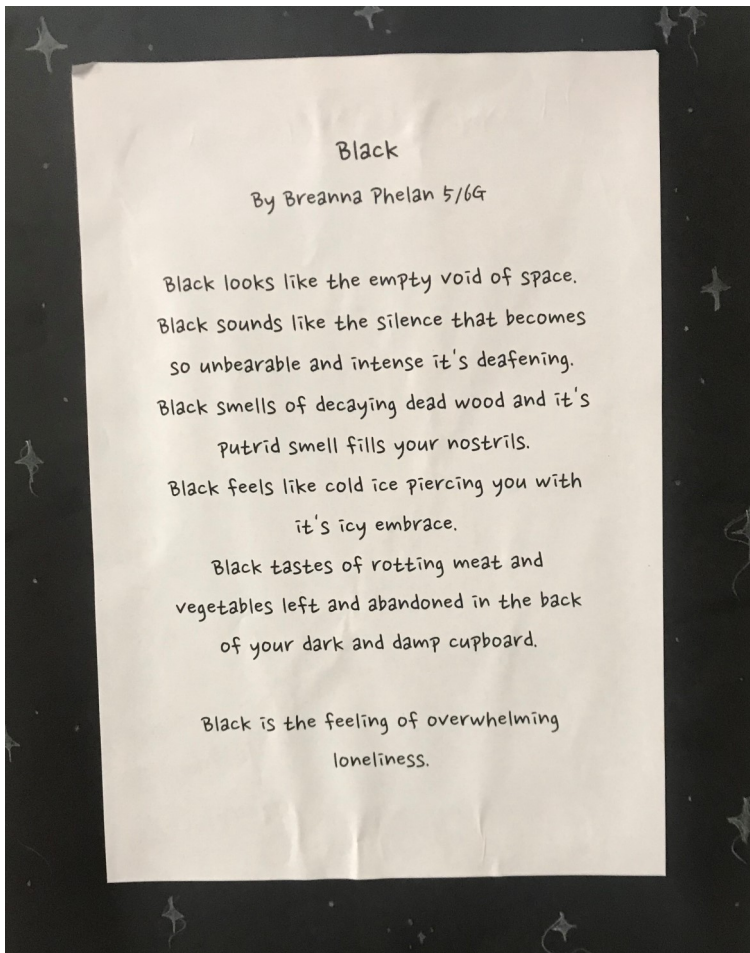 Black
By Breanna Phelan 5/6G
Black looks like the empty void of space.
Black sounds like the silence that becomes
so unbearable and intense it's deafening.
Black smells of decaying dead wood and it's
putrid smell fills your nostrils.
Black feels like cold ice piercing you with
it's icy embrace.
Black tastes of rotting meat and
vegetables left and abandoned in the back
of your dark and damp cupboard.
Black is the feeling of overwhelming
loneliness.